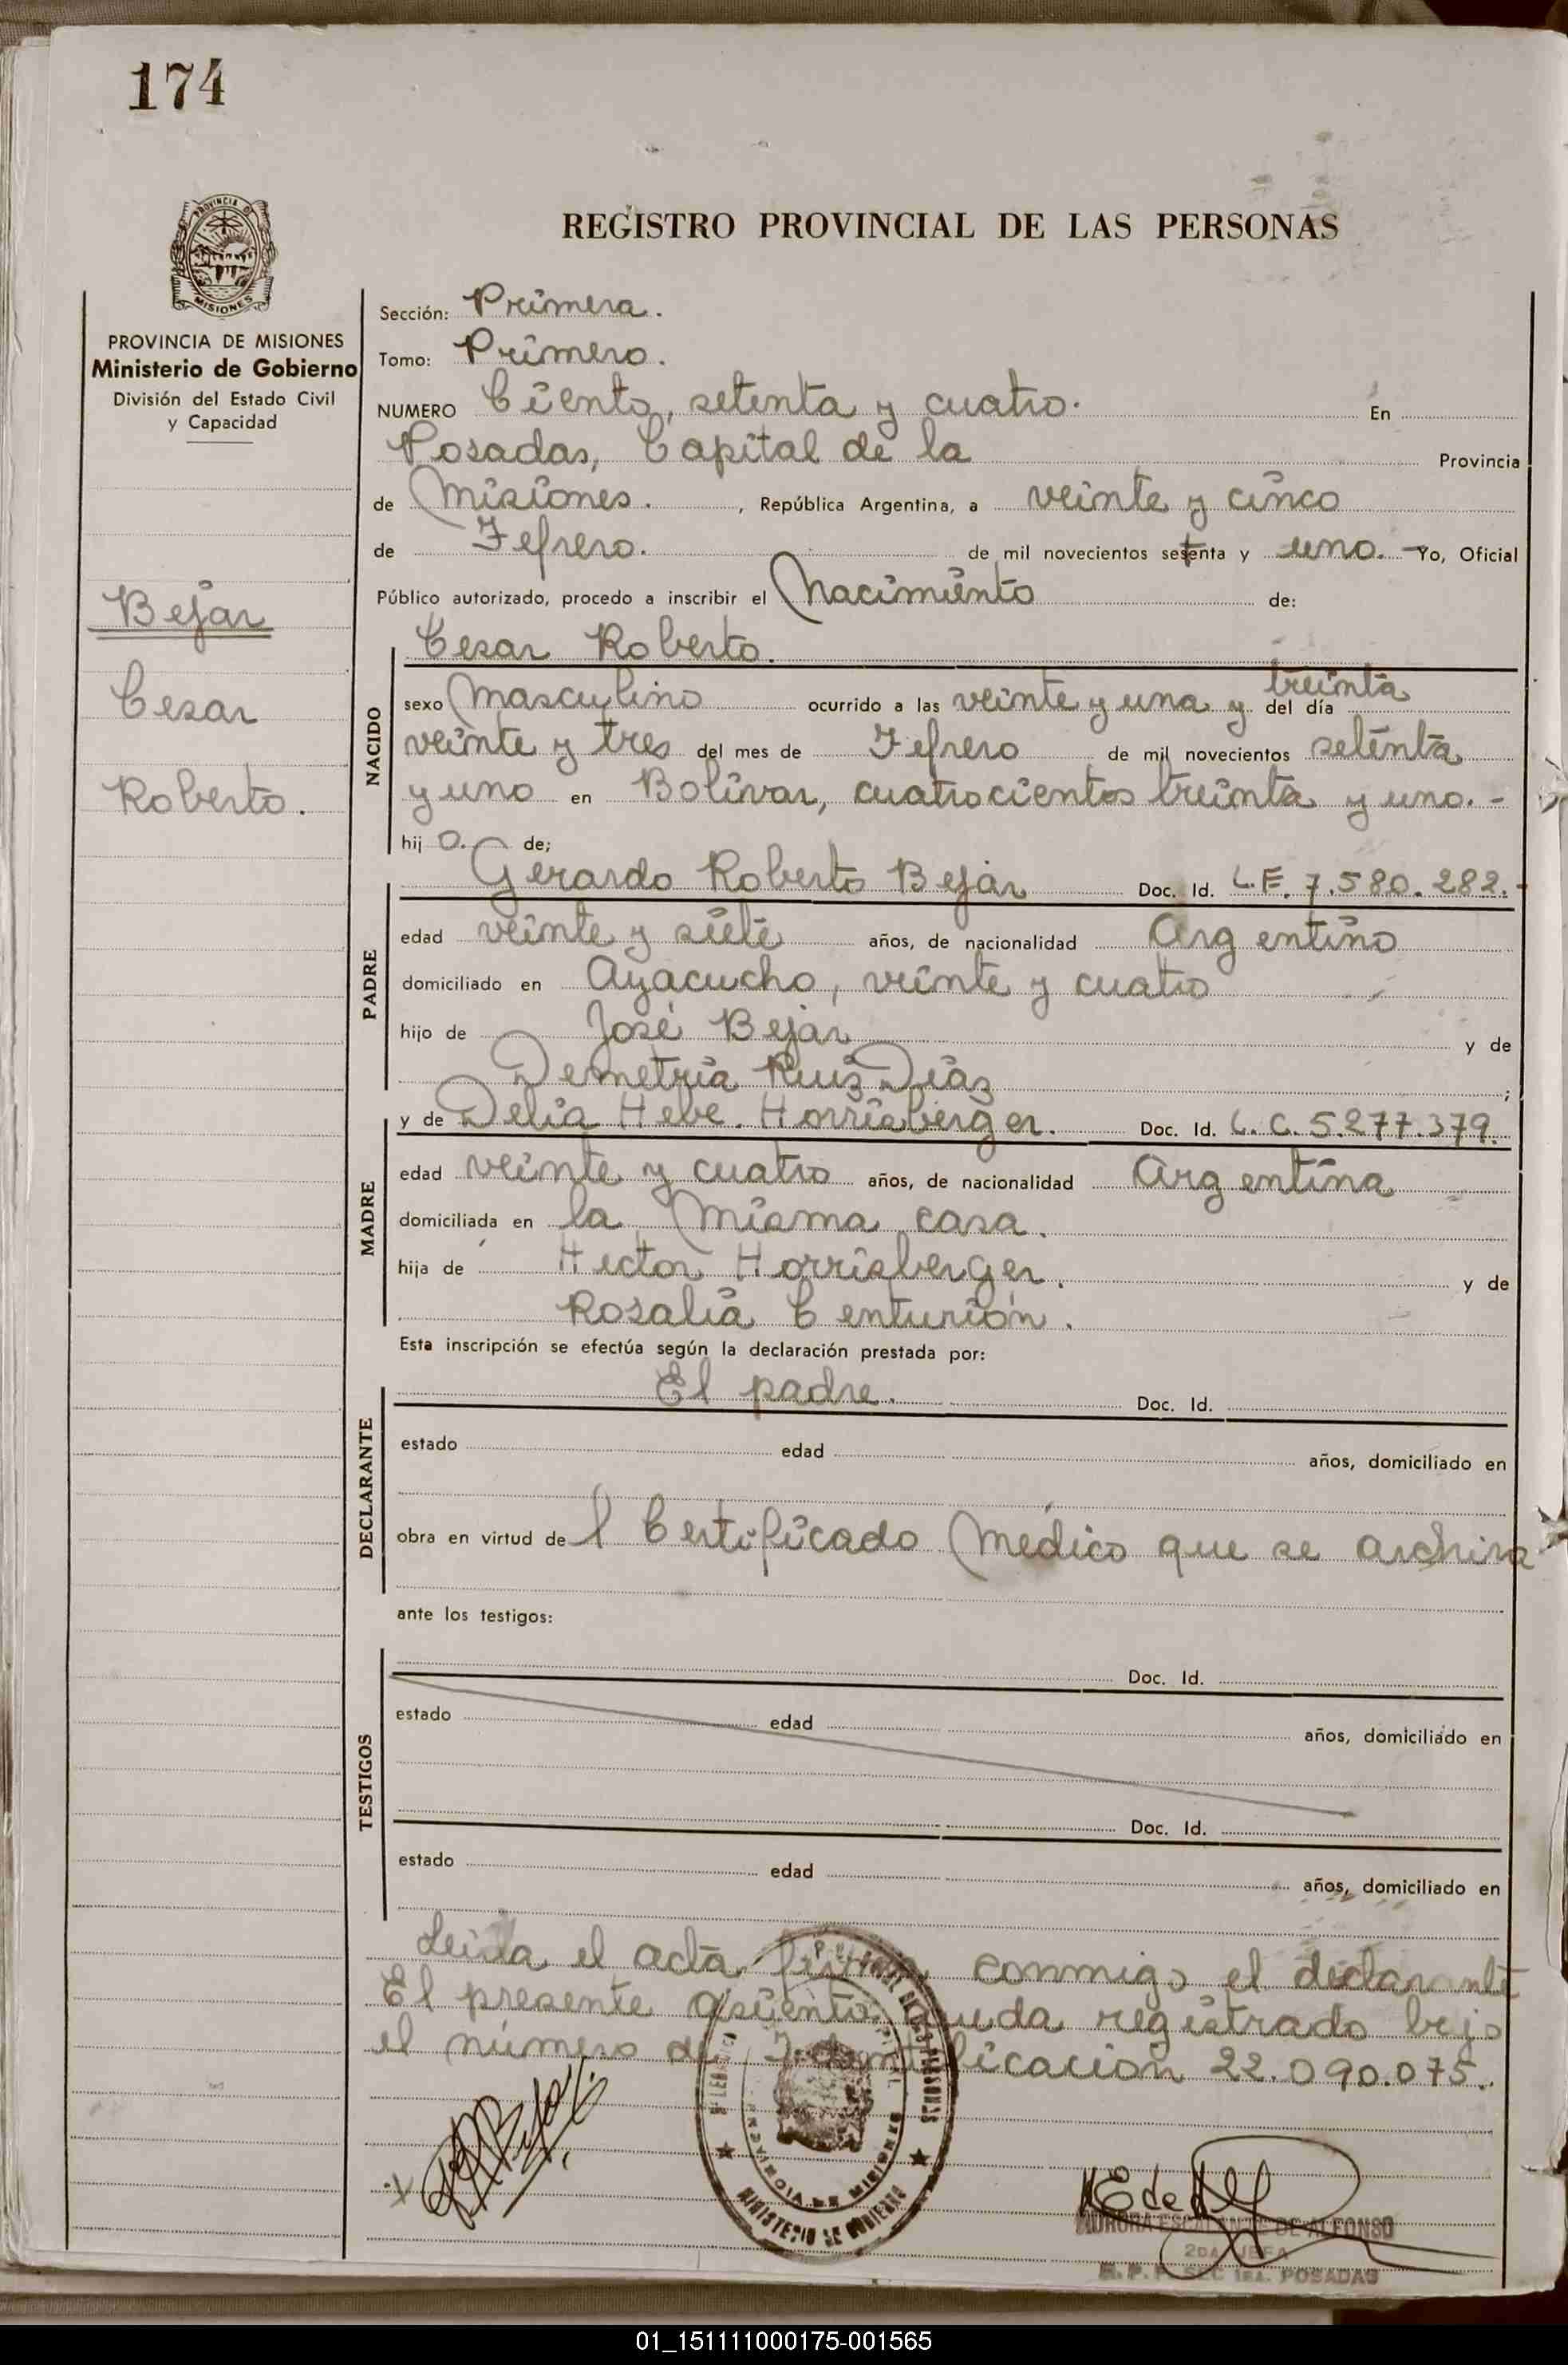 174
PROVINCIA DE
MISIONES
REGISTRO PROVINCIAL DE LAS PERSONAS
PROVINCIA DE MISIONES
Ministerio de Gobierno
División del Estado Civil
y Capacidad
Bejar
Cesar
Roberto.
Sección: Primera.
Tomo: Primero.
NUMERO Ciento, setenta y cuatro. En
Posadas, Capital de la Provincia
de Misiones. , República Argentina, a veinte y cinco
de Febrero. de mil novecientos setenta y uno. - Yo, Oficial
Público autorizado, procedo a inscribir el Nacimiento de:
Cesar Roberto.
NACIDO
sexo Masculino ocurrido a las veinte y una y treinta del día
veinte y tres del mes de Febrero de mil novecientos setenta
y uno en Bolívar, cuatrocientos treinta y uno. -
hij o. de;
Gerardo Roberto Bejar Doc. Id. L.E. 7.580.282.-
PADRE
edad veinte y siete años, de nacionalidad Argentino
domiciliado en Ayacucho, veinte y cuatro
hijo de José Bejar y de
Demetria Ruiz Diaz ;
y de Delia Hebe. Horrisberger. Doc. Id. L.C. 5.277.379.
MADRE
edad veinte y cuatro años, de nacionalidad Argentina
domiciliada en la misma casa.
hija de Hector Horrisberger. y de
Rosalia Centurión.
Esta inscripción se efectúa según la declaración prestada por:
El padre. Doc. Id.
DECLARANTE
estado edad años, domiciliado en
obra en virtud de l Certificado Médico que se archiva
ante los testigos:
Doc. Id.
TESTIGOS
estado edad años, domiciliado en
Doc. Id.
estado edad años, domiciliado en
Leida el acta firma conmigo el declarante
El presente asiento queda registrado bajo
el número de Identificación 22.090.075.
PROVINCIA DE MISIONES
MINISTERIO DE GOBIERNO
AURORA ESCALANTE DE ALFONSO
2DA. JEFA
R.P.P. SEC 1RA. POSADAS
01_151111000175-001565